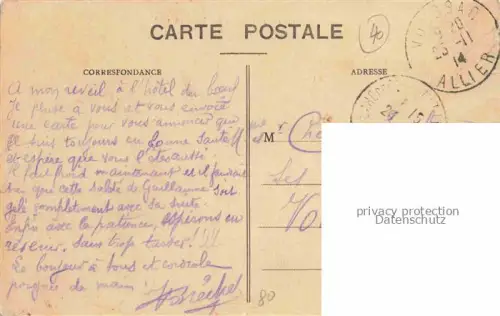 CARTE POSTALE
40
CORRESPONDANCE
ADRESSE
ALLIER
A mon reveil à l'hôtel du boeuf
Je pense à vous et vous envoie
une carte pour vous annoncer que
je suis toujours en bonne santé
et espère que vous l'êtes aussi
Il fait froid maintenant et il faudrait
bien que cette saleté de Guillaume soit
gelé complètement avec sa suite.
Enfin avec la patience, espérons en
revenir. Sans trop tarder. !!!
Le bonjour à tous et cordiale
poignée de main!
M
privacy protection
Datenschutz
80